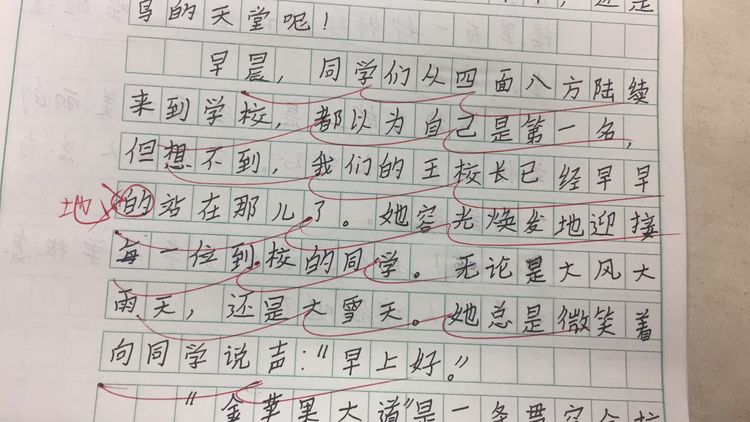 鸟的天堂呢!
早晨,同学们从四面八方陆续
来到学校,都以为自己是第一名,
但想不到,我们的王校长已经早早
地
的站在那儿了。她容光焕发地迎接
每一位到校的同学。无论是大风大
雨天,还是大雪天。她总是微笑着
向同学说声:"早上好。"
"金苹果大道"是一条贯穿全校